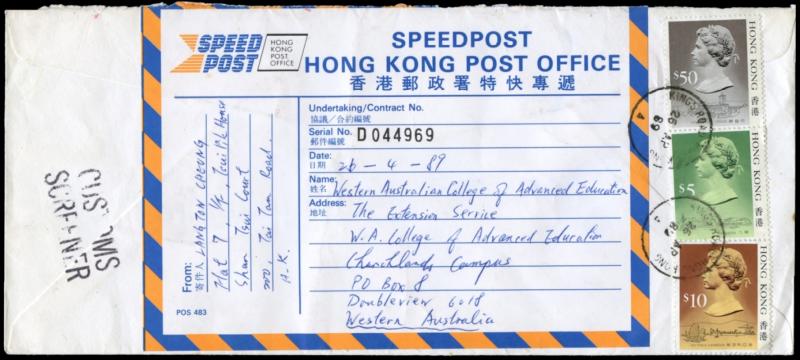 SPEED
POST
HONG
KONG
POST
OFFICE
SPEEDPOST
HONG KONG POST OFFICE
香港郵政署特快專遞
Undertaking/Contract No.
協議／合約編號
Serial No. D 044969
郵件編號
Date: 26-4-89
日期
Name: Western Australian College of Advanced Education
姓名
Address: The Extension Service
地址
W.A. College of Advanced Education
Churchlands Campus
PO Box 8
Doubleview 6018
Western Australia
From:
寄件人 LANGTON CHEUNG
Flat 7, 1/F,
Shan Tsui Court
Tai Tam Road
H.K.
POS 483
CUSTOMS
SCREENER
$50
HONG KONG 香港
$5
HONG KONG 香港
$10
HONG KONG 香港
KING'S ROAD
26 AP
89